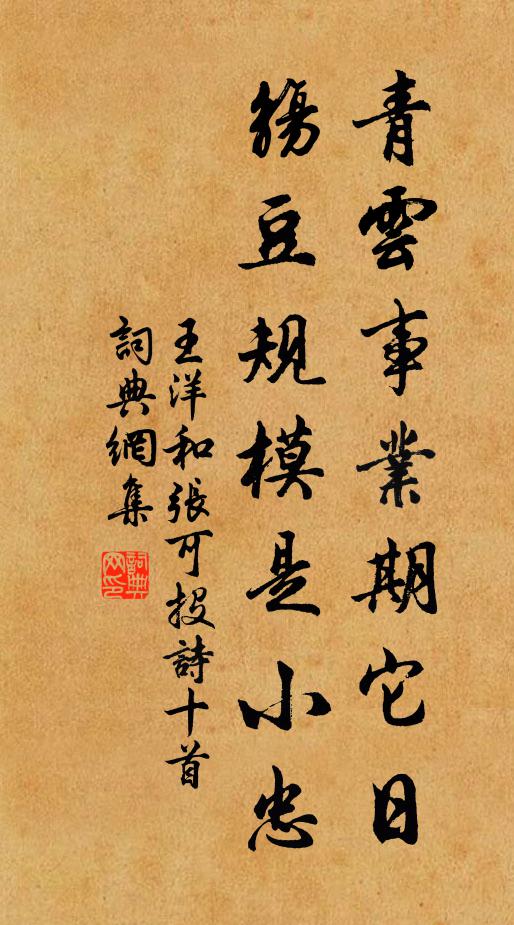 青雲事業期它日
觴豆規模是小忠
王洋和張可投詩十首
詞典網集
詞典
网印